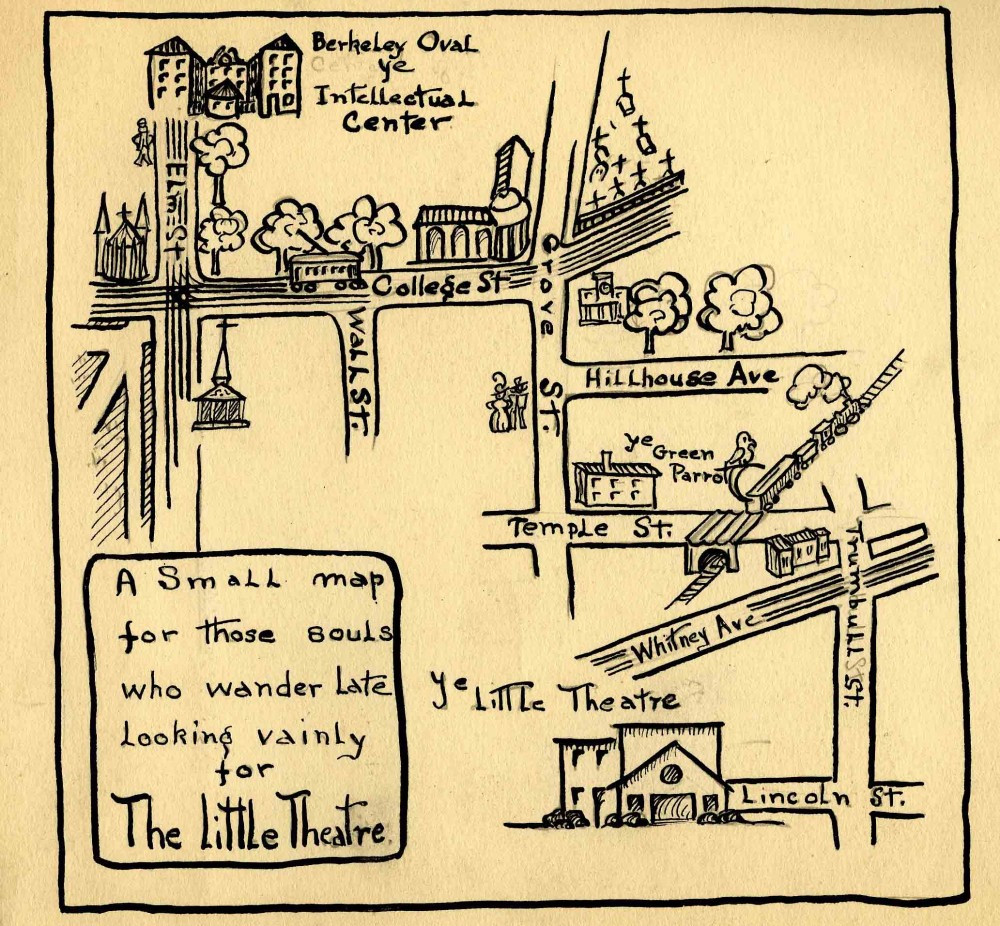 Berkeley Oval
ye
Intellectual
Center
Elm St
College St
Grove St.
Wall St.
Hillhouse Ave
ye Green
Parrot
Temple St.
Trumbull St.
Whitney Ave
ye Little Theatre
Lincoln St.
A Small map
for those souls
who wander late
Looking vainly
for
The Little Theatre.